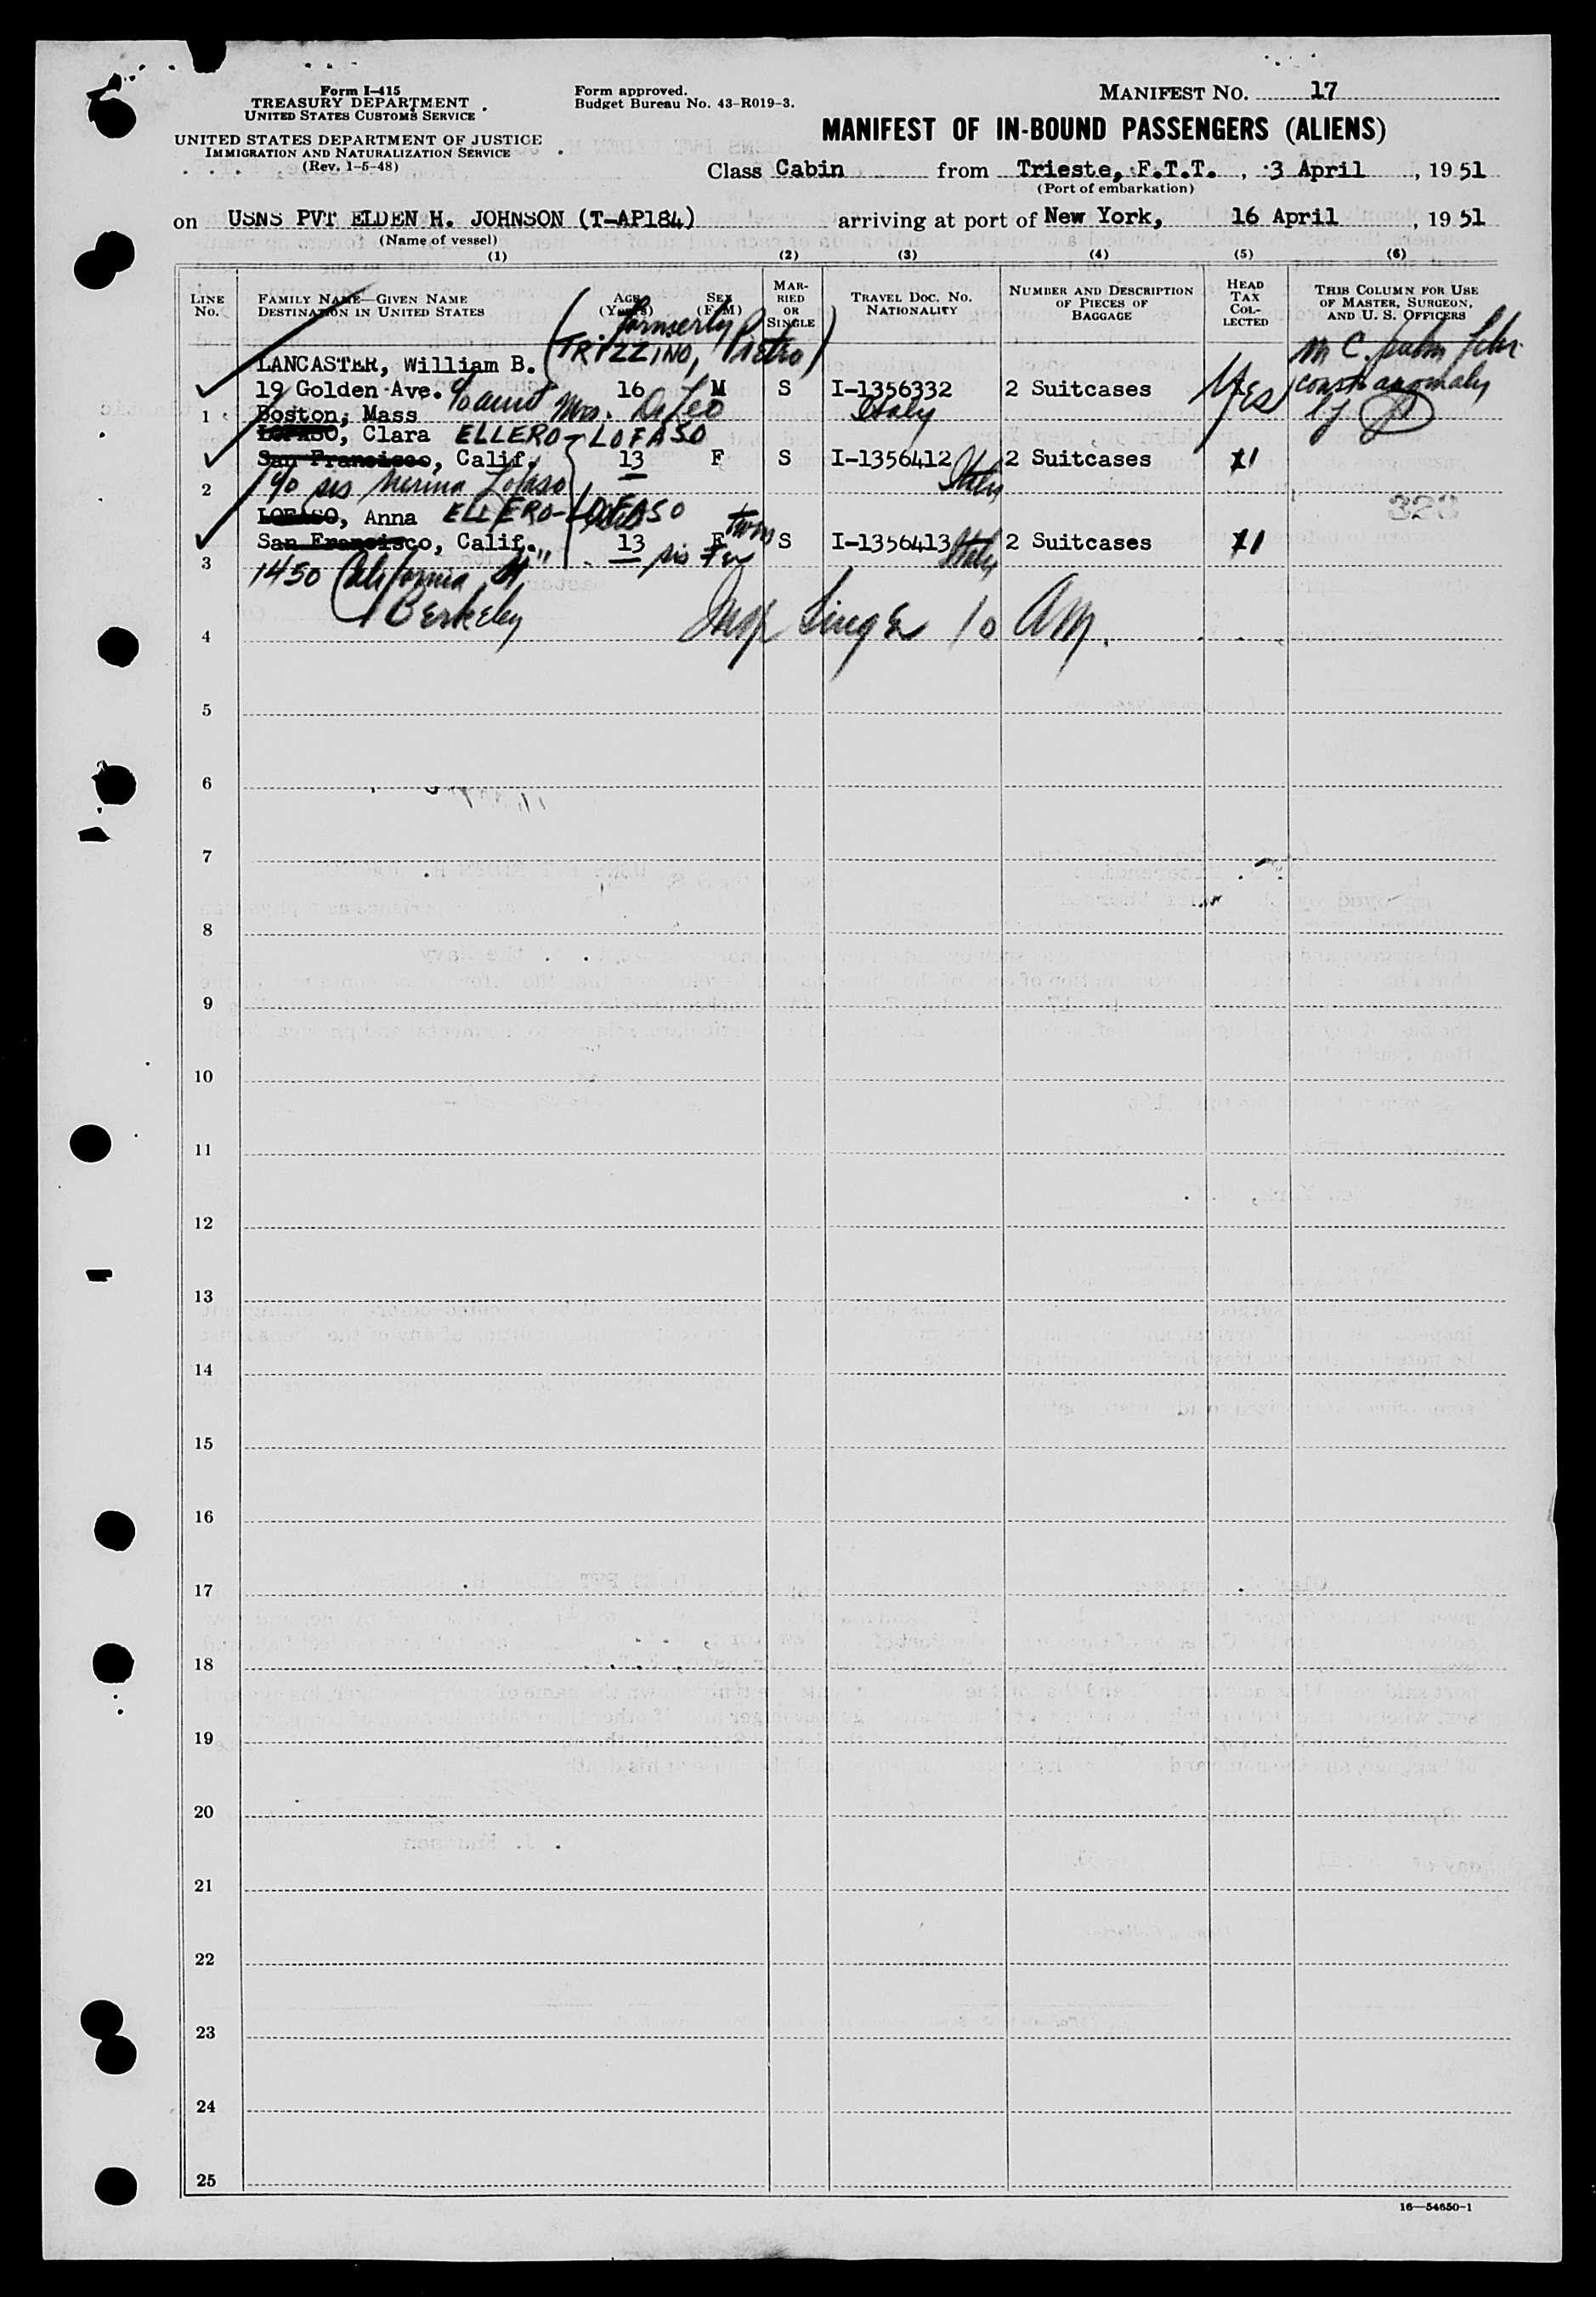 Form I-415
TREASURY DEPARTMENT
UNITED STATES CUSTOMS SERVICE
UNITED STATES DEPARTMENT OF JUSTICE
IMMIGRATION AND NATURALIZATION SERVICE
(Rev. 1-5-48)
Form approved.
Budget Bureau No. 43-R019-3.
MANIFEST NO. 17
MANIFEST OF IN-BOUND PASSENGERS (ALIENS)
Class Cabin from Trieste, F.T.T., 3 April, 19 51
(Port of embarkation)
on USNS PVT ELDEN H. JOHNSON (T-AP184) arriving at port of New York, 16 April, 19 51
(Name of vessel)
(1) (2) (3) (4) (5) (6)
LINE No. FAMILY NAME—GIVEN NAME DESTINATION IN UNITED STATES AGE (Years) SEX (F-M) MARRIED OR SINGLE TRAVEL DOC. NO. NATIONALITY NUMBER AND DESCRIPTION OF PIECES OF BAGGAGE HEAD TAX COLLECTED THIS COLUMN FOR USE OF MASTER, SURGEON, AND U. S. OFFICERS
LANCASTER, William B. (formerly TRIZZINO, Pietro)
19 Golden Ave. c/o aunt Mrs. De Leo 16 M S I-1356332 2 Suitcases Yes
1 Boston, Mass Italy
LOFASO, Clara ELLERO-LOFASO
San Francisco, Calif. 13 F S I-1356412 Italy 2 Suitcases
2 c/o sis Nerina Lofaso
LOFASO, Anna ELLERO-LOFASO 328
San Francisco, Calif. 13 F twins S I-1356413 Italy 2 Suitcases
3 1450 California St
Berkeley
4 Insp Singer 10 AM.
5
6
7
8
9
10
11
12
13
14
15
16
17
18
19
20
21
22
23
24
25
16—54650-1